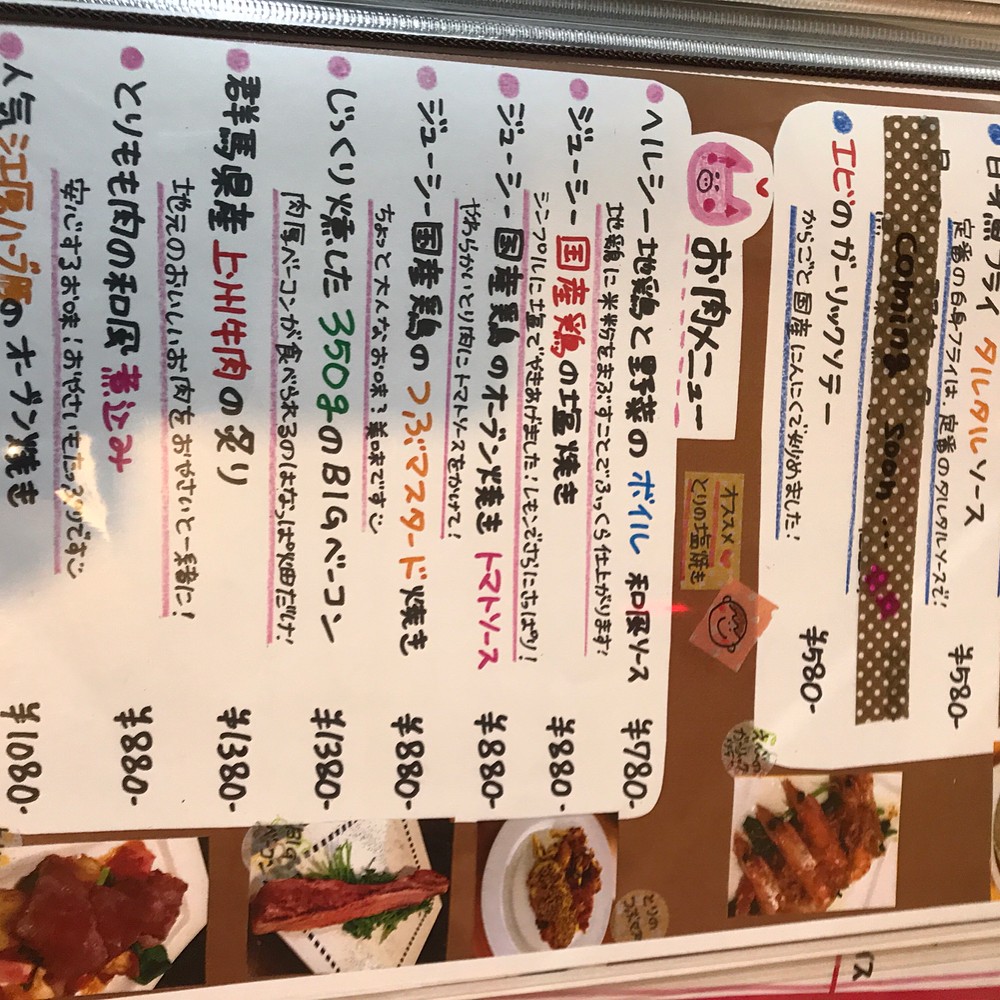 白身魚フライ タルタルソース
定番の白身フライは 定番のタルタルソースで!
¥580-
Coming Soon...
エビのガーリックソテー
からごと国産にんにくで炒めました!
¥580-
お肉メニュー
オススメ
とりの塩焼き
ヘルシー地鶏と野菜の ボイル 和風ソース ¥780-
地鶏に米粉をまぶすことでふっくら仕上がります!
ジューシー国産鶏の塩焼き ¥880-
シンプルに塩でやきあげました!レモンでさらにさっぱり!
ジューシー国産鶏のオーブン焼き トマトソース ¥880-
やわらかいとり肉にトマトソースをかけて!
ジューシー国産鶏の つぶマスタード焼き ¥880-
ちょっと大人なお味!美味です
じっくり焼した 350gのBIGベーコン ¥1380-
肉厚ベーコンが食べられるのはなっぱ畑だけ!
群馬県産 上州牛肉の炙り ¥1380-
地元のおいしいお肉をおやさいと一緒に!
とりもも肉の和風煮込み ¥880-
安心するお味!おやさいもたっぷりです
人気 豚のオーブン焼き ¥1080-
えびのガーリックソテー
とりのつぶマス
BIGベーコン